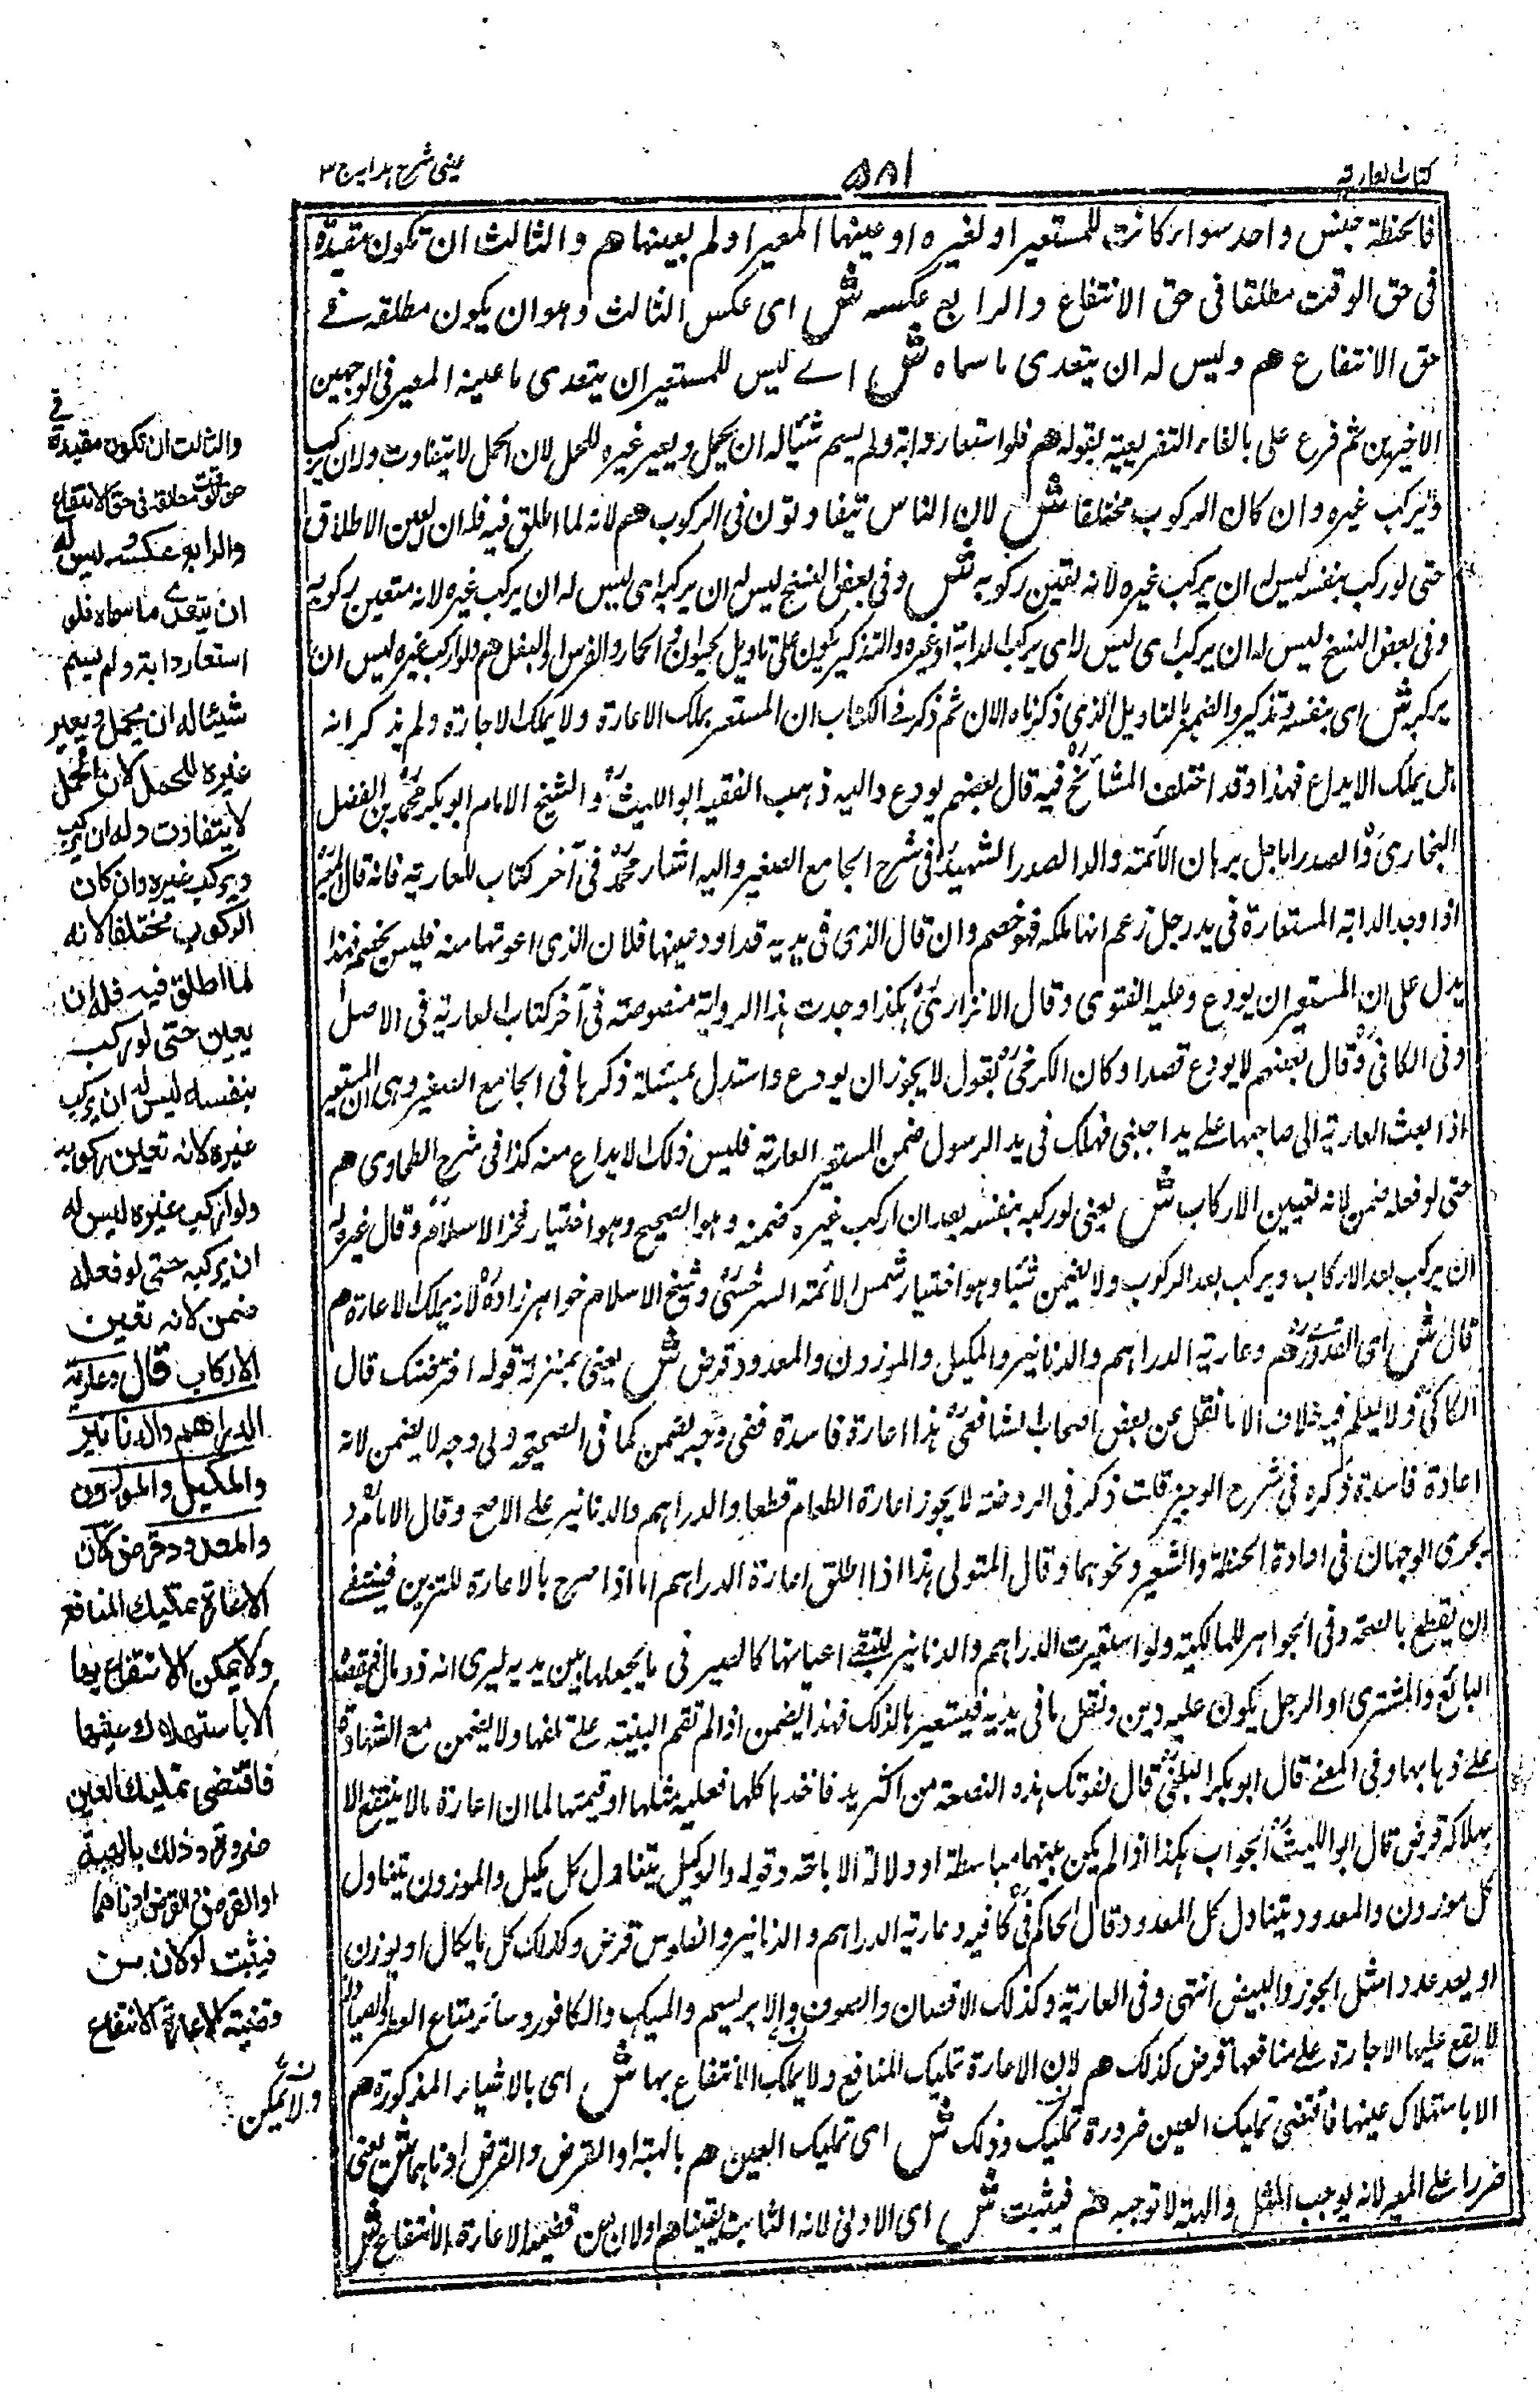 كتاب العارية
٥٨١
عينى شرح هدايه ج ٣
فالحنطة جنس واحد سواء كانت للمستعير او لغيره او عينها المعير او لم يعينها هم والثالث ان تكون مقيدة
فى حق الوقت مطلقا فى حق الانتفاع والرابع عكسه ش اى عكس الثالث وهو ان يكون مطلقه فے
حق الانتفاع هم وليس له ان يتعدى ما سماه ش اے ليس للمستعير ان يتعدى ما عينه المعير فى الوجهين
الاخيرين ثم فرع على بالفاء التفريعية بقوله هم فلو استعار دابة ولم يسم شيئا له ان يحمل ويعير غيره للحمل لان الحمل لا يتفاوت وله ان يركب
ويركب غيره وان كان الركوب مختلفا ش لان الناس يتفاوتون فى الركوب هم لانه لما اطلق فيه فله ان يعين الاطلاق
حتى لو ركب بنفسه ليس له ان يركب غيره لانه تعين ركوبه ش وفى بعض النسخ ليس له ان يركبه اى ليس له ان يركب غيره لانه متعين ركوبه
وفى بعض النسخ ليس له ان يركب اى ليس له اى يركب الدابة او غيره والتذكير يكون على تاويل الحيوان الحمار والفرس او البغل هم ولو اركب غيره ليس ان
يركبه ش اى بنفسه وتذكير الضمير بالتاويل الذى ذكرناه الان ثم ذكر فے الكتاب ان المستعير يملك الاعارة ولا يملك الاجارة ولم يذكر انه
هل يملك الايداع فهذا وقد اختلف المشائخ فيه قال بعضهم يودع واليه ذهب الفقيه ابو الليث والشيخ الامام ابو بكر محمد بن الفضل
البخارى والصدر الاجل برهان الائمة والد الصدر الشهيد فى شرح الجامع الصغير واليه اشار محمد فى آخر كتاب العارية فانه قال
اذا وجد الدابة المستعارة فى يد رجل زعم انها ملكه فهو خصم وان قال الذى فى يديه قد اودعينها فلان الذى اعرتها منه فليس بخصم فهذا
يدل على ان المستعير ان يودع وعليه الفتوى وقال الاترازى هكذا وجدت هذه الرواية منصوصة فى آخر كتاب العارية فى الاصل
وفى الكافى وقال بعضهم لا يودع قصدا وكان الكرخى يقول لا يجوز ان يودع واستدل بمسئلة ذكرها فى الجامع الصغير وهى ان المستعير
اذا بعث العارية الى صاحبها على يد اجنبى فهلك فى يد الرسول ضمن المستعير العارية فليس ذلك الا ايداع منه كذا فى شرح الطحاوى هم
حتى لو فعله ضمن لانه تعيين الاركاب ش يعنى لو ركبه بنفسه بعد ان اركب غيره ضمنه وهو الصحيح وهو اختيار فخر الاسلام وقال غيره له
ان يركب بعد الاركاب ويركب بعد الركوب ولا يضمن شيئا وهو اختيار شمس الائمة السرخسى وشيخ الاسلام خواهر زاده لانه يملك الاعارة هم
قال ش اى القدورى هم وعارية الدراهم والدنانير والمكيل والموزون والمعدود قرض ش يعنى بمنزلة قوله اقرضتك قال
الكاكى ولا يعلم فيه خلاف الا ما نقل عن بعض اصحاب الشافعى هذا اعارة فاسدة ففى وجه يضمن كما فى الصحيحة وفى وجه لا يضمن لانه
اعادة فاسدة ذكره فى شرح الوجيز قلت ذكر فى الروضة لا يجوز اعارة الطعام قطعا والدراهم والدنانير على الاصح وقال الامام و
يجرى الوجهان فى اعادة الحنطة والشعير ونحوهما وقال المتولى هذا اذا اطلق اعارة الدراهم اما اذا صرح بالاعارة للتزين فينبغے
ان يقطع بالصحة وفى الجواهر للمالكية ولو استعيرت الدراهم والدنانير لتبقے اعيانها كالصير فى ما يجعلها بين يديه ليرى انه ذو مال فيقصده
البائع والمشترى او الرجل يكون عليه دين ونقل ما فى يديه فيستعيرها لذلك فهذا يضمن اذا لم تقم البينة على تلفها ولا يضمن مع الشهادة
على ذهابها وفى المغنے قال ابو بكر البلخى قال لغوتك هذه القصعة من اكثريد فاخذها كلها فعليه مثلها او قيمتها لما ان اعارة ما لا ينتفع الا
بهلاكه قرض قال ابو الليث الجواب هكذا اذا لم يكن بينهما مباسطة او دلالة الاباحة وقوله والوكيل يتناول كل مكيل والموزون يتناول
كل موزون والمعدود يتناول كل المعدود قال الحاكم فى كافيه وعارية الدراهم والدنانير والفلوس قرض وكذلك كل ما يكال او يوزن
او يعد عددا مثل الجوز والبيض انتهى وفى العارية وكذلك الاقصان والصوف والابريسم والمسك والكافور وسائر متاع العطر والصيادلة
لا يقع عليها الاجارة على منافعها قرض كذلك هم لان الاعارة تمليك المنافع ولا يملك الانتفاع بها ش اى بالاشياء المذكورة هم
الا باستهلاك عينها فاقتضى تمليك العين ضرورة تمليك وذلك ش اى تمليك العين هم بالهبة او القرض والقرض ادناهما ش يعنى
ضررا على المعير لانه يوجب المثل والهبة لا توجبه هم فيثبت ش اى الادنى لانه الثابت يقينا هم او لان من قضية الاعارة الانتفاع ش
والثالث ان تكون مقيدة فى
حق الوقت مطلقة فى حق الانتفاع
والرابع عكسه وليس له
ان يتعدے ما سماه فلو
استعار دابة ولم يسم
شيئا له ان يحمل ويعير
غيره للحمل لان الحمل
لا يتفاوت وله ان يركب
ويركب غيره وان كان
الركوب مختلفا لانه
لما اطلق فيه فله ان
يعين حتى لو ركب
بنفسه ليس له ان يركب
غيره لانه تعين ركوبه
ولو اركب غيره ليس له
ان يركبه حتى لو فعله
ضمن لانه تعين
الاركاب قال وعارية
الدراهم والدنانير
والمكيل والموزون
والمعدود قرض لان
الاعارة تمليك المنافع
ولا يمكن الانتفاع بها
الا باستهلاك عينها
فاقتضى تمليك العين
ضرورة وذلك بالهبة
او القرض والقرض ادناهما
فيثبت او لان من
قضية الاعارة الانتفاع
ولا يمكن